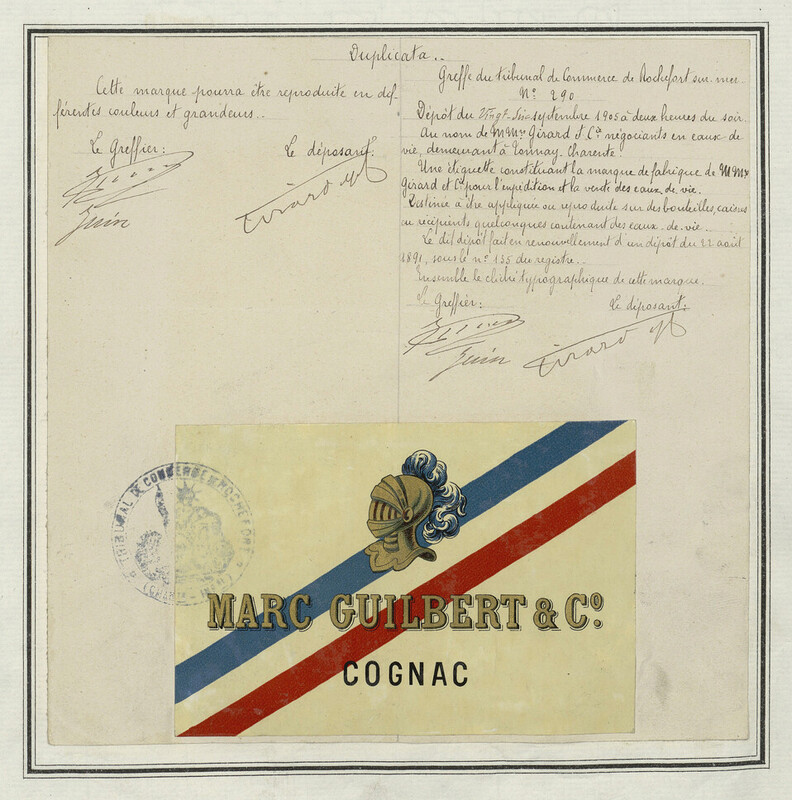 Duplicata..
Cette marque pourra être reproduite en dif-
férentes couleurs et grandeurs..
Le Greffier:
Le déposant:
Juin
Girard
Greffe du tribunal de Commerce de Rochefort sur mer
No 290
Dépôt du Vingt-Six septembre 1905 à deux heures du soir.
Au nom de MMrs Girard et Cie négociants en eaux de
vie, demeurant à Tonnay-Charente.
Une étiquette constituant la marque de fabrique de MMrs
Girard et Cie pour l'expédition et la vente des eaux de vie.
Destinée à être appliquée ou reproduite sur des bouteilles, caisses
ou récipients quelconques contenant des eaux-de-vie..
Le dit dépôt fait en renouvellement d'un dépôt du 22 août
1891, sous le no 155 du registre..
Ensemble le cliché typographique de cette marque.
Le Greffier:
Le déposant:
Juin
Girard
TRIBUNAL DE COMMERCE DE ROCHEFORT
MARC GUILBERT & Co.
COGNAC